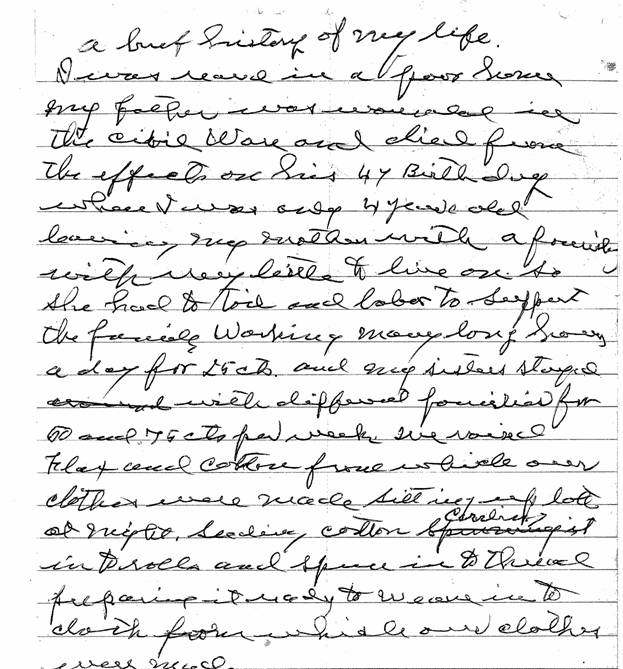 a brief history of my life.
I was reard in a poor home
my father was wounded in
the civil Ware and died from
the effects on his 47 Birth day
when I was only 4 years old
leaving my mother with a family
with very little to live on. So
she had to toil and labor to support
the family Working many long hours
a day for 25 cts. and my sisters stayed
with different families for
50 and 75 cts per week. we raised
Flax and cotton from which our
clothes were made sitting up late
at night, seeding cotton Carding
in to rolls and spun in to thread
preparing it ready to weave in to
cloth from which our clothes
were made.